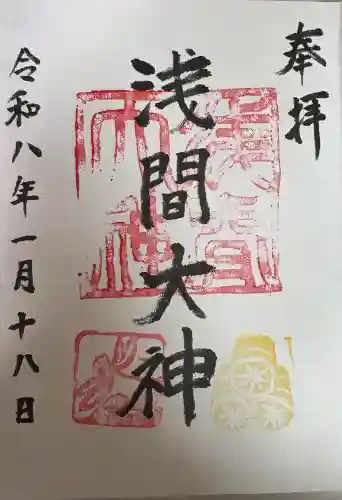 奉拝
浅間大神
令和八年一月十八日